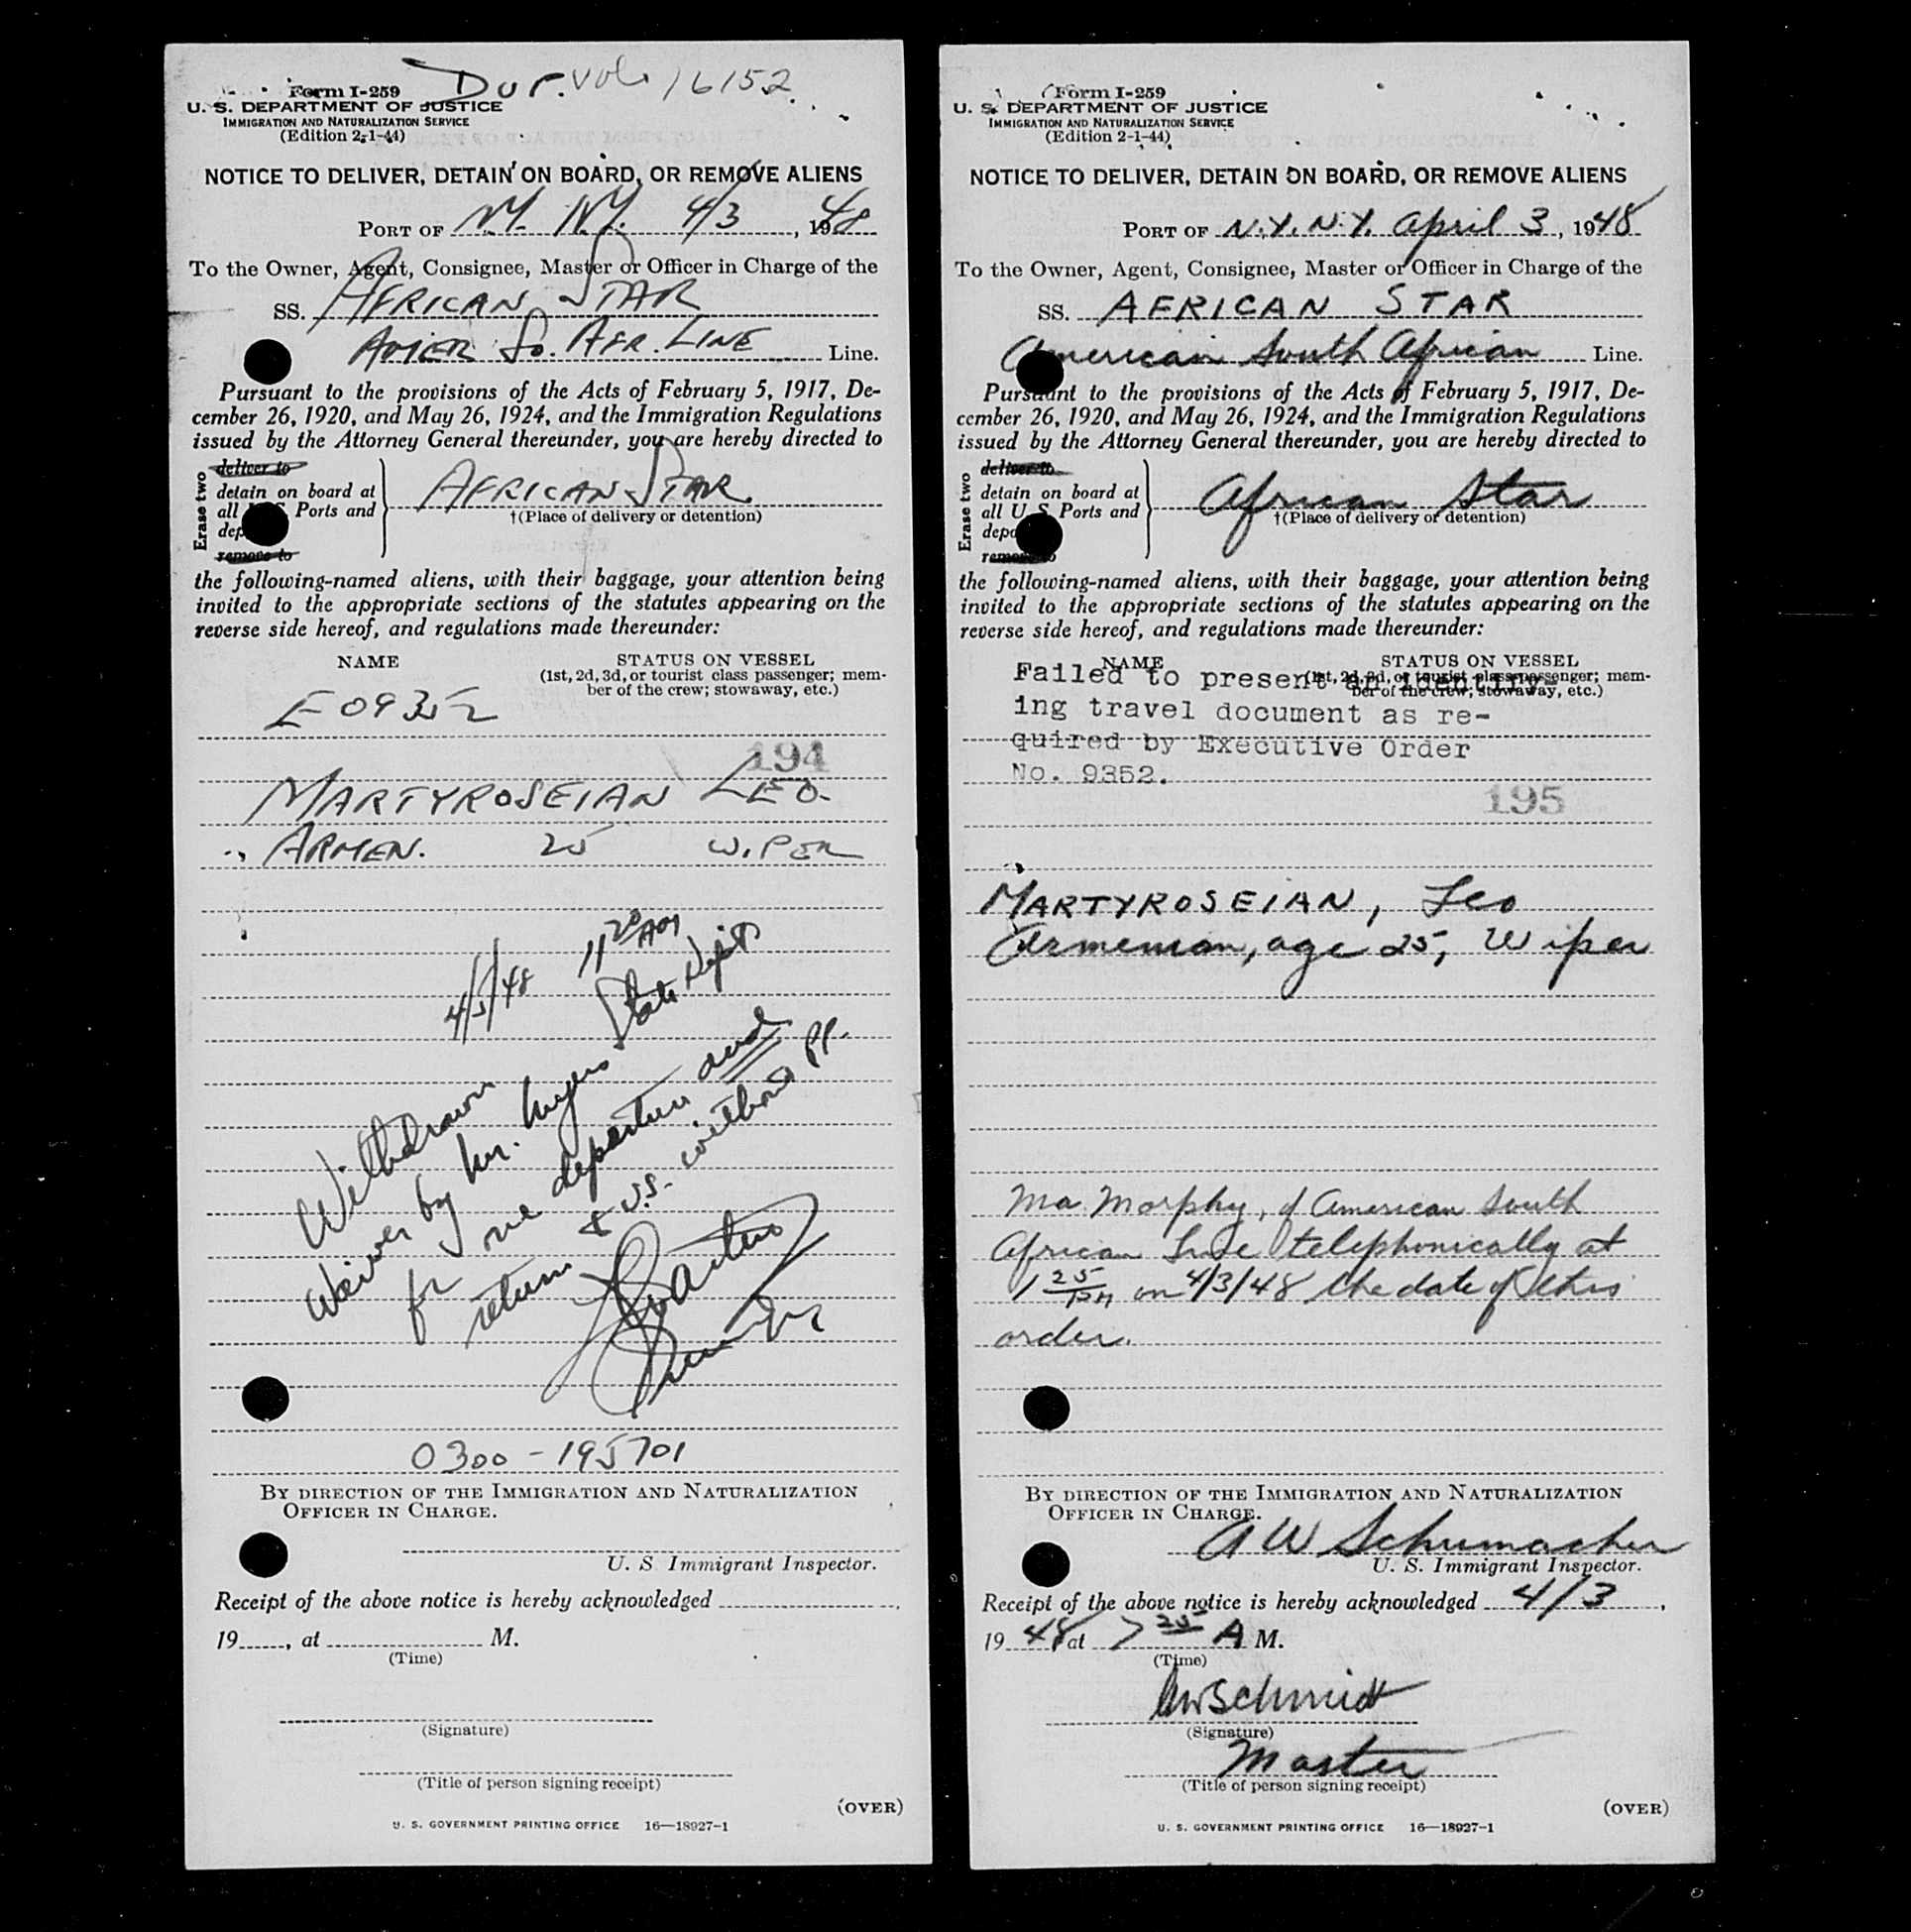 Dup. Vol. 16152
Form I-259
U. S. DEPARTMENT OF JUSTICE
IMMIGRATION AND NATURALIZATION SERVICE
(Edition 2-1-44)
NOTICE TO DELIVER, DETAIN ON BOARD, OR REMOVE ALIENS
PORT OF N.Y. N.Y. 4/3, 1948
To the Owner, Agent, Consignee, Master or Officer in Charge of the
SS. AFRICAN STAR
AMER So. AFR. LINE Line.
Pursuant to the provisions of the Acts of February 5, 1917, De-
cember 26, 1920, and May 26, 1924, and the Immigration Regulations
issued by the Attorney General thereunder, you are hereby directed to
Erase two
deliver to
detain on board at
all Ports and
dep
remove to
AFRICAN STAR
†(Place of delivery or detention)
the following-named aliens, with their baggage, your attention being
invited to the appropriate sections of the statutes appearing on the
reverse side hereof, and regulations made thereunder:
NAME STATUS ON VESSEL
(1st, 2d, 3d, or tourist class passenger; mem-
ber of the crew; stowaway, etc.)
E O 9352
194
MARTYROSEIAN LEO.
ARMEN. 25 WIPER
4/5/48 11 20 AM
Withdrawn
Waiver by Mr. Myers State Dept
for one departure and
return to U.S. without pp.
0300-195701
BY DIRECTION OF THE IMMIGRATION AND NATURALIZATION
OFFICER IN CHARGE.
U. S Immigrant Inspector.
Receipt of the above notice is hereby acknowledged
19, at M.
(Time)
(Signature)
(Title of person signing receipt)
(OVER)
U. S. GOVERNMENT PRINTING OFFICE 16—18927-1
Form I-259
U. S. DEPARTMENT OF JUSTICE
IMMIGRATION AND NATURALIZATION SERVICE
(Edition 2-1-44)
NOTICE TO DELIVER, DETAIN ON BOARD, OR REMOVE ALIENS
PORT OF N.Y. N.Y. April 3, 1948
To the Owner, Agent, Consignee, Master or Officer in Charge of the
SS. AFRICAN STAR
American South African Line.
Pursuant to the provisions of the Acts of February 5, 1917, De-
cember 26, 1920, and May 26, 1924, and the Immigration Regulations
issued by the Attorney General thereunder, you are hereby directed to
Erase two
deliver to
detain on board at
all U S Ports and
depo
remove to
African Star
†(Place of delivery or detention)
the following-named aliens, with their baggage, your attention being
invited to the appropriate sections of the statutes appearing on the
reverse side hereof, and regulations made thereunder:
NAME STATUS ON VESSEL
(1st, 2d, 3d, or tourist class passenger; mem-
ber of the crew; stowaway, etc.)
Failed to present an identify-
ing travel document as re-
quired by Executive Order
No. 9352.
195
MARTYROSEIAN, Leo
Armenian, age 25, Wiper
Morphy, of American South
African Line telephonically at
1 25 PM on 4/3/48 the date of this
order.
BY DIRECTION OF THE IMMIGRATION AND NATURALIZATION
OFFICER IN CHARGE.
A W Schumacher
U. S. Immigrant Inspector.
Receipt of the above notice is hereby acknowledged 4/3,
1948 at 7 25 A M.
(Time)
Schmidt
(Signature)
Master
(Title of person signing receipt)
(OVER)
U. S. GOVERNMENT PRINTING OFFICE 16—18927-1